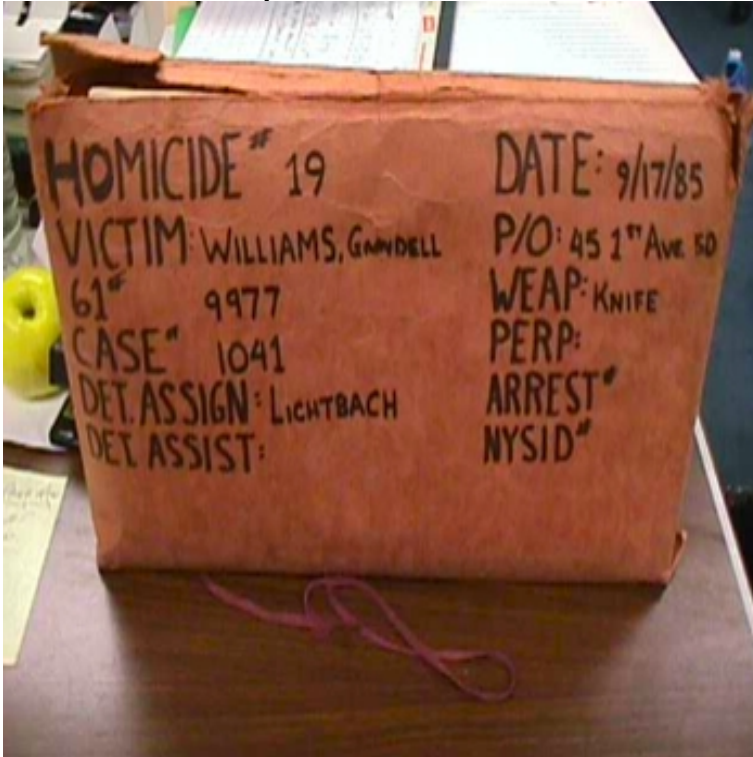 HOMICIDE # 19
VICTIM: WILLIAMS,
61# 9977
CASE # 1041
DET. ASSIGN: LICHTBACH
DET. ASSIST:
DATE: 9/17/85
P/O: 45 1ST AVE.
WEAP: KNIFE
PERP:
ARREST #
NYSID #